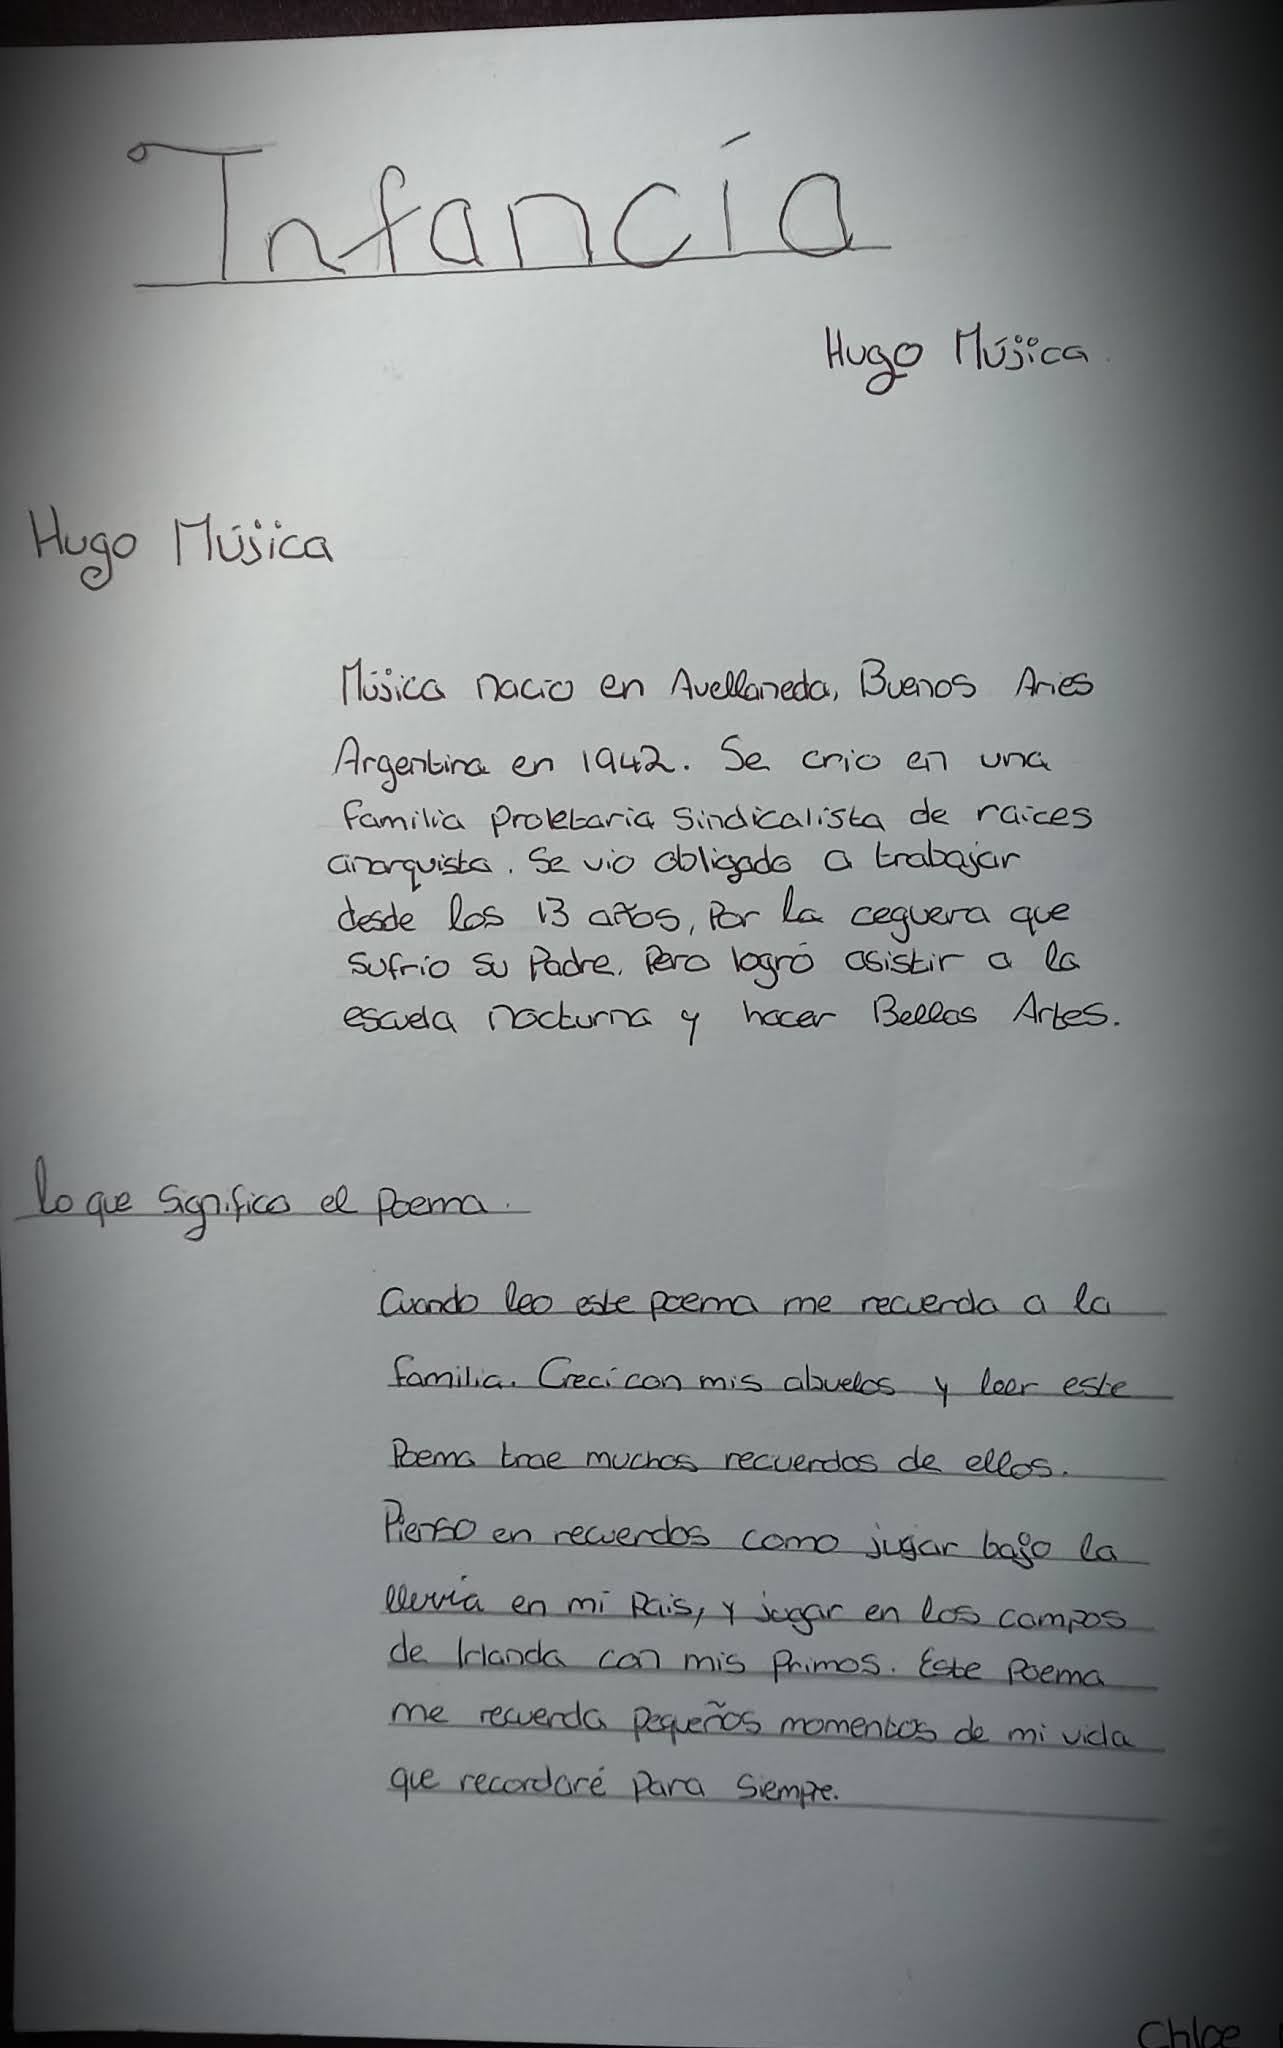 Infancía
Hugo Músjica
Hugo Músjica
Músjica nacio en Avellaneda, Buenos Aries
Argentina en 1942. Se crio en una
familia proletaria sindicalista de raices
anarquista. Se vio obligado a trabajar
desde los 13 años, por la ceguera que
sufrio su Padre. Pero logró asistir a la
escuela nocturna y hacer Bellas Artes.
lo que significa el poema.
Cuando leo este poema me recuerda a la
familia. Crecí con mis abuelos y leer este
Poema trae muchos recuerdos de ellos.
Pienso en recuerdos como jugar bajo la
lluvia en mi Pais, y jugar en los campos
de Irlanda con mis primos. Este poema
me recuerda pequeños momentos de mi vida
que recordaré para siempre.
Chloe